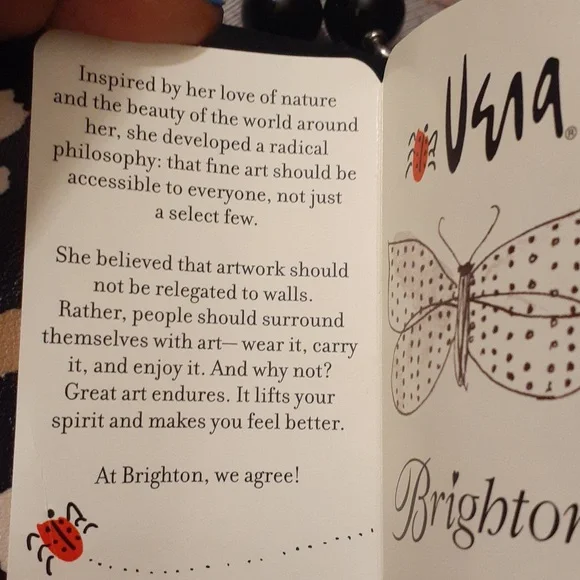 Inspired by her love of nature
and the beauty of the world around
her, she developed a radical
philosophy: that fine art should be
accessible to everyone, not just
a select few.
She believed that artwork should
not be relegated to walls.
Rather, people should surround
themselves with art—wear it, carry
it, and enjoy it. And why not?
Great art endures. It lifts your
spirit and makes you feel better.
At Brighton, we agree!
Vera®
Brighton